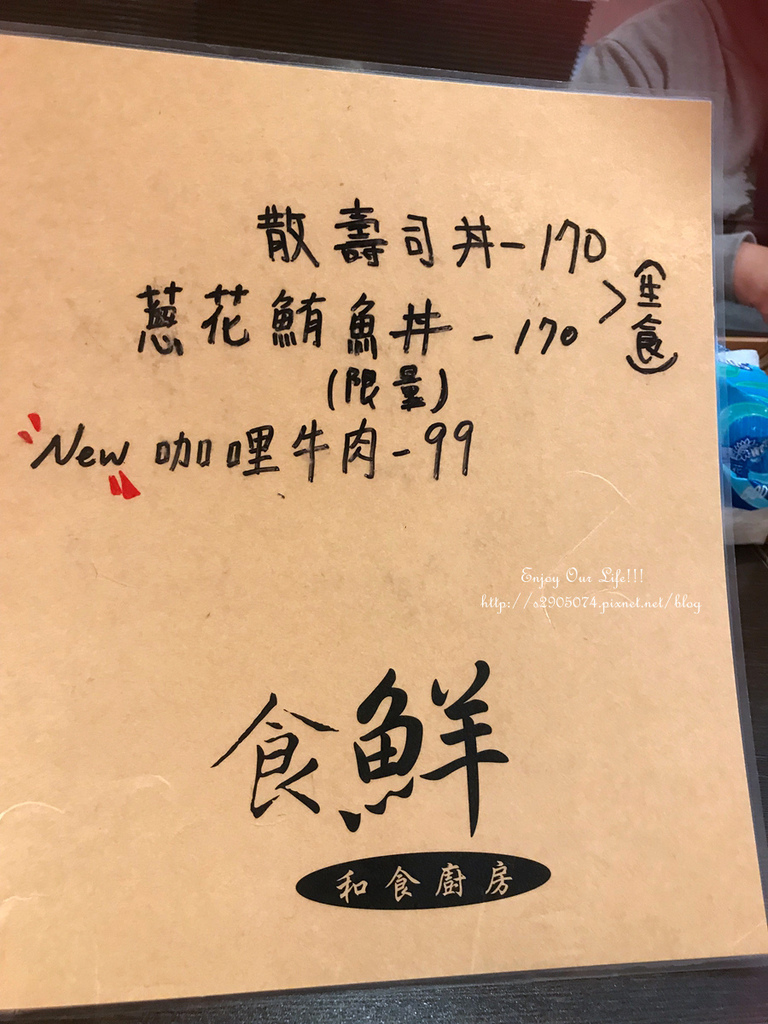 散壽司丼-170
蔥花鮪魚丼-170
(生食)
(限量)
New 咖哩牛肉-99
Enjoy Our Life!!!
http://s2905074.pixnet.net/blog
食鮮
和食廚房